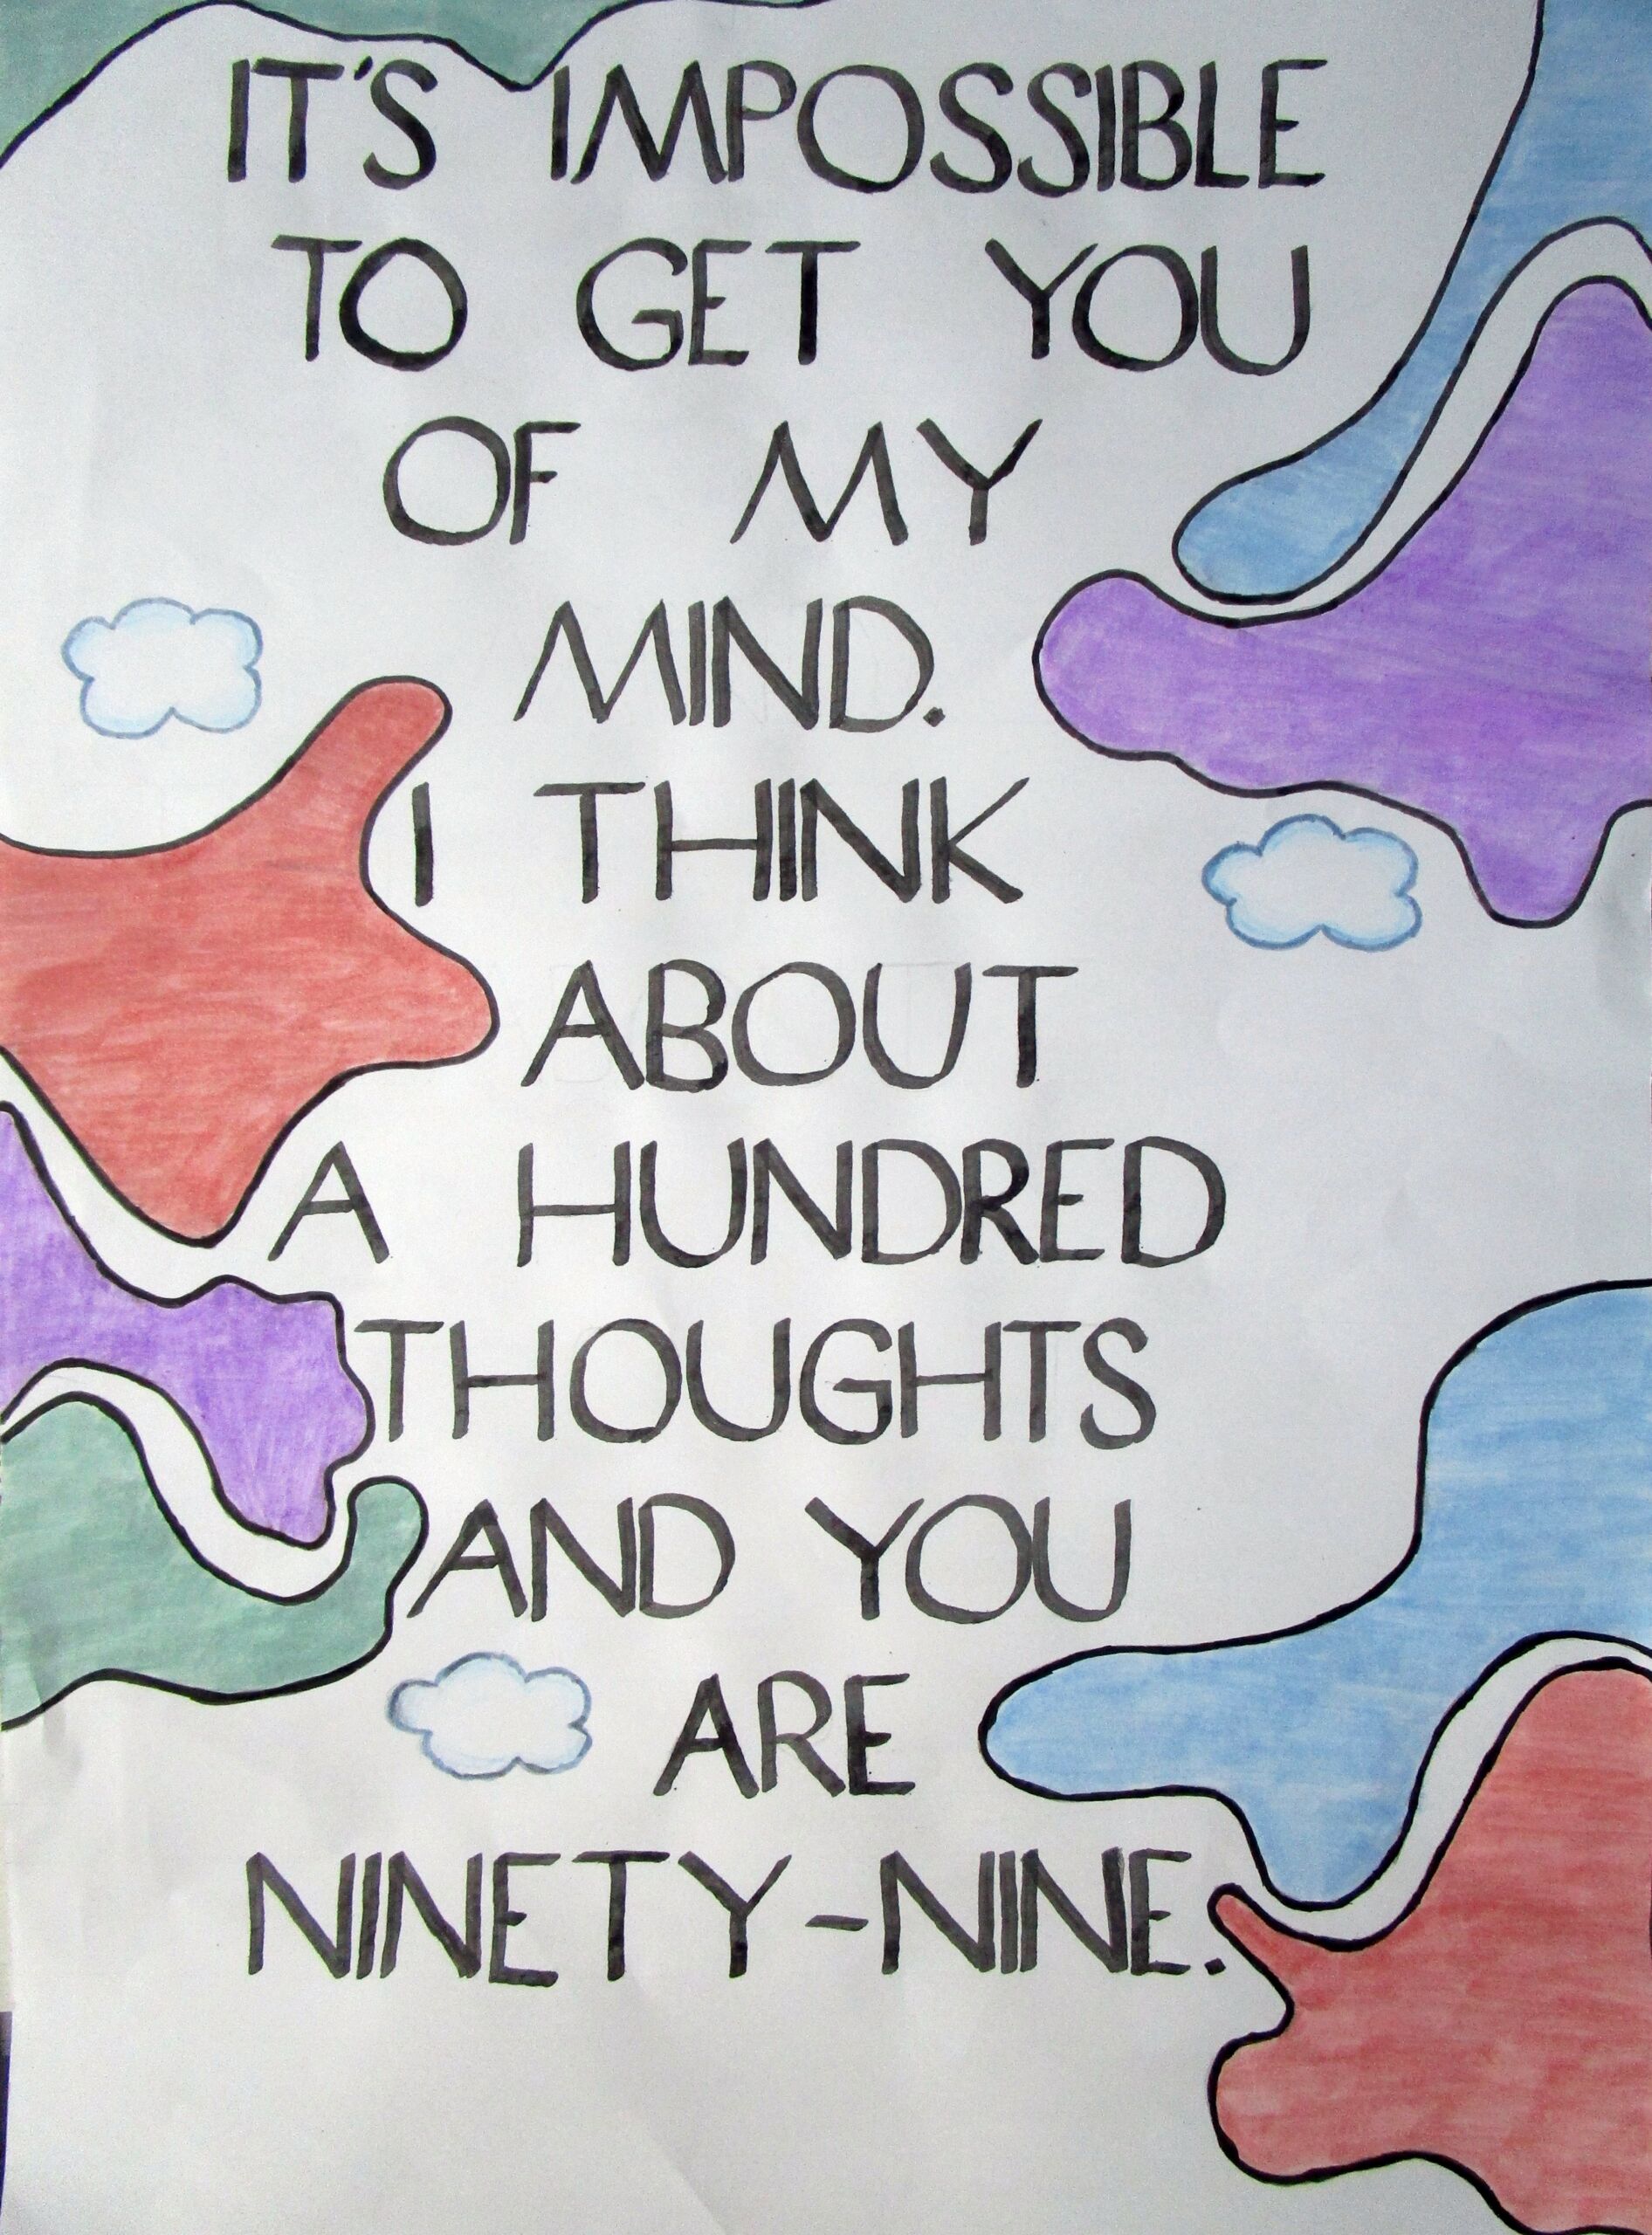 IT'S IMPOSSIBLE
TO GET YOU
OF MY
MIND.
I THINK
ABOUT
A HUNDRED
THOUGHTS
AND YOU
ARE
NINETY-NINE.